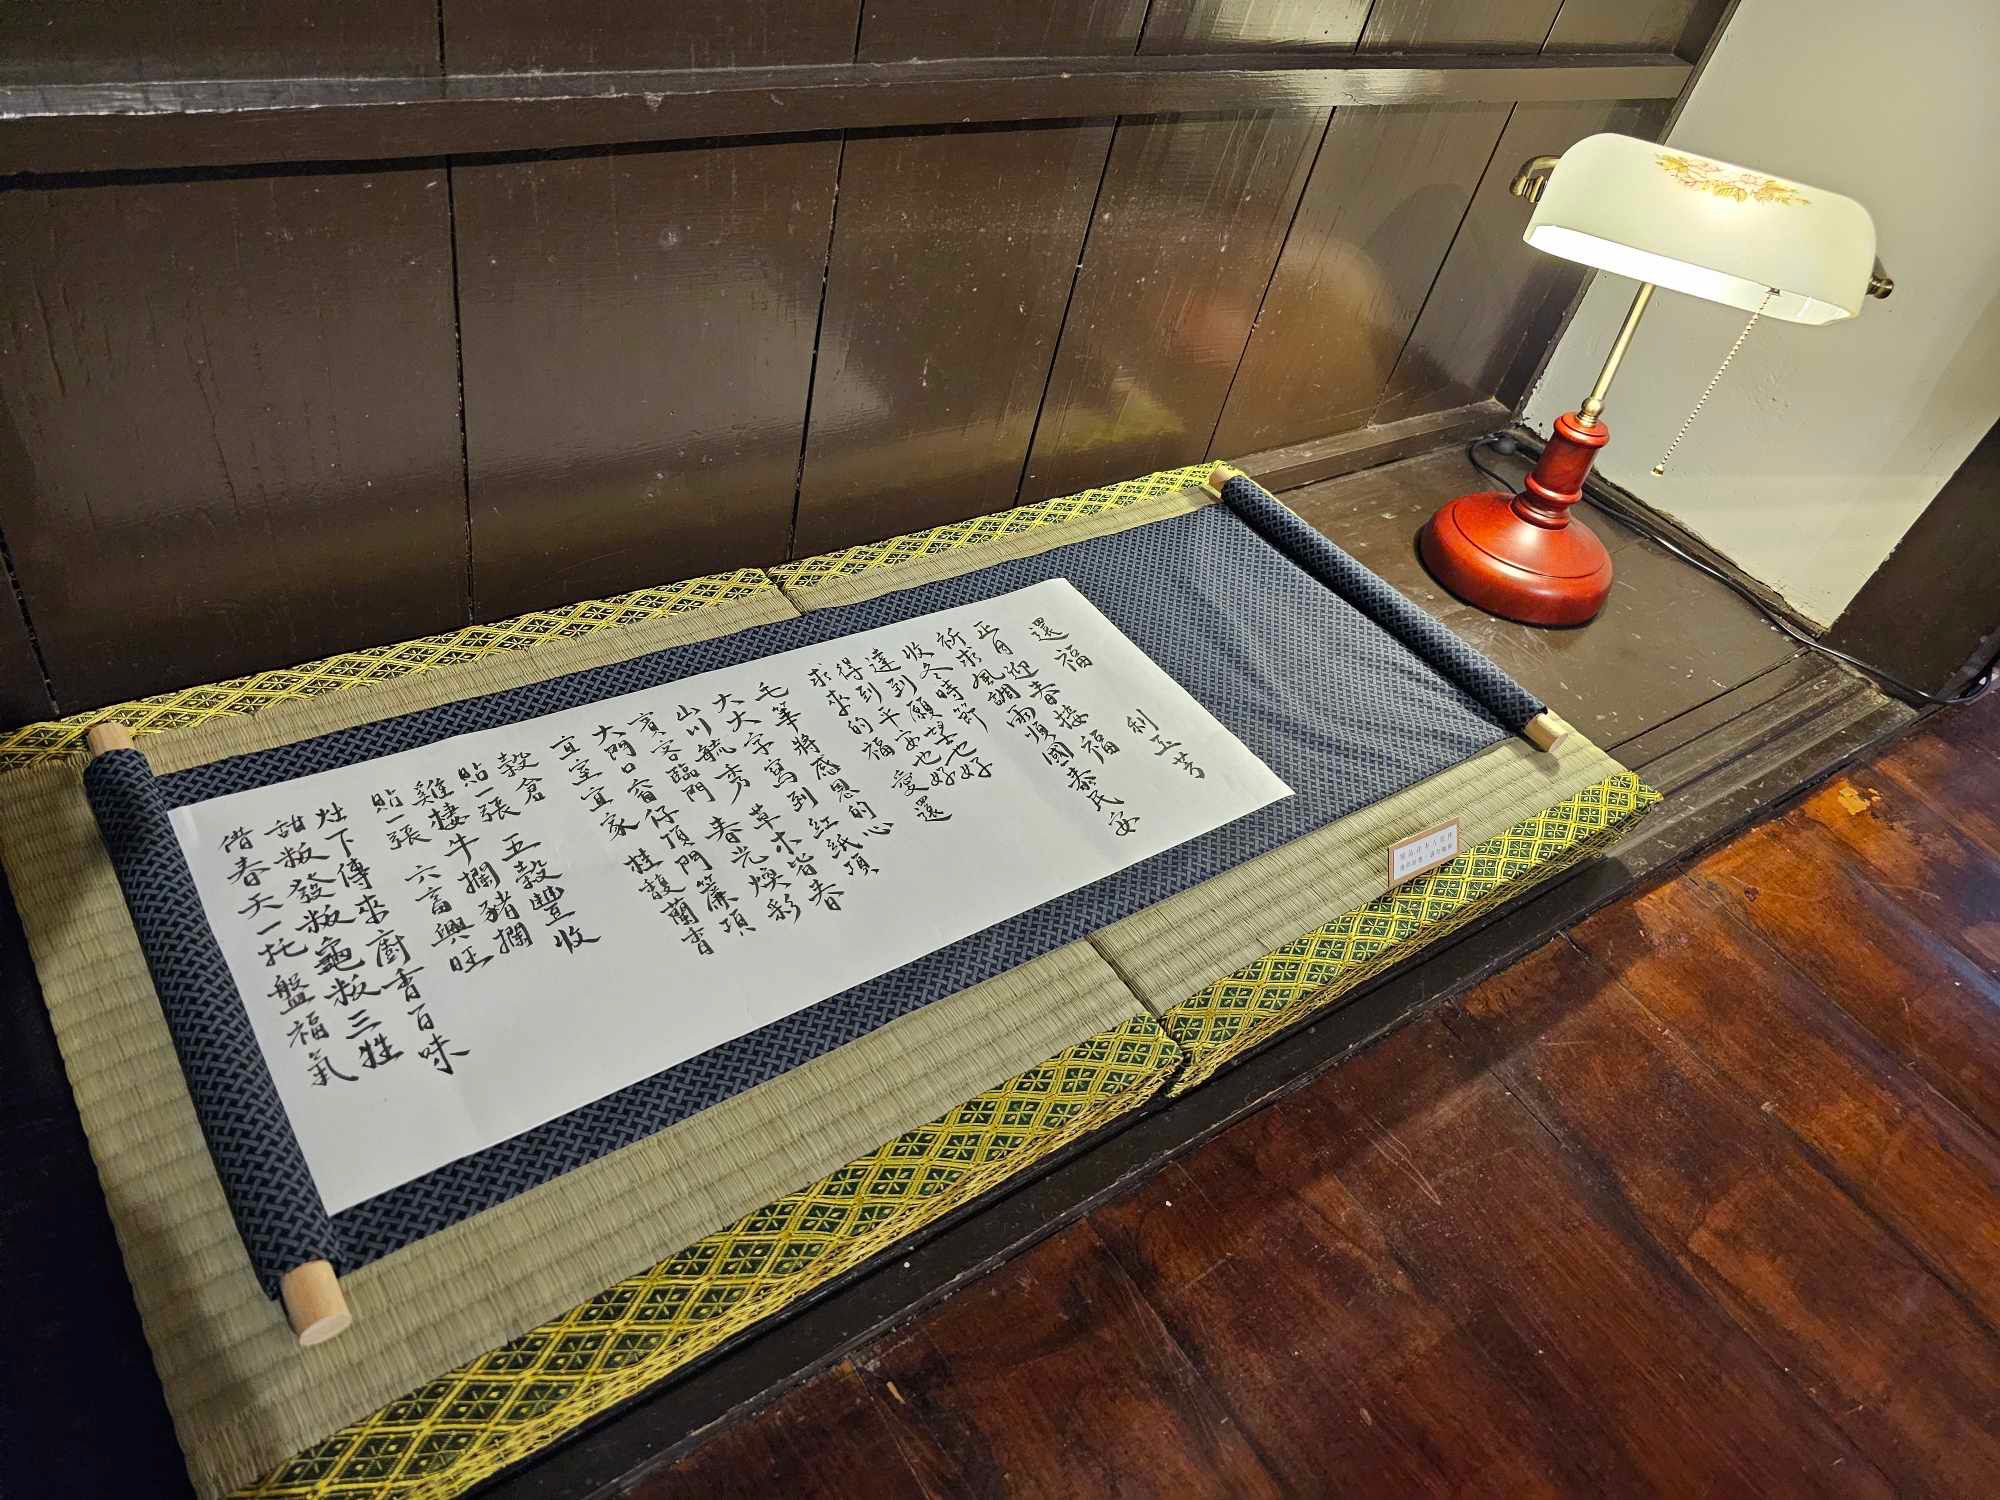 還福
利玉芳
正月迎春接福
祈求風調雨順國泰民安
收冬時節
達到願望也好
得到平安也好
求來的福愛還
毛筆將感恩的心
大大字寫到紅紙項
山川毓秀 草木皆春
賓客臨門 春光煥彩
大門口 窗仔頂 門簾項
宜室宜家 桂馥蘭香
穀倉
貼一張 五穀豐收
雞棲牛欄豬欄
貼一張 六畜興旺
灶下傳來廚香百味
甜粄發粄龜粄三牲
借春天一托盤福氣